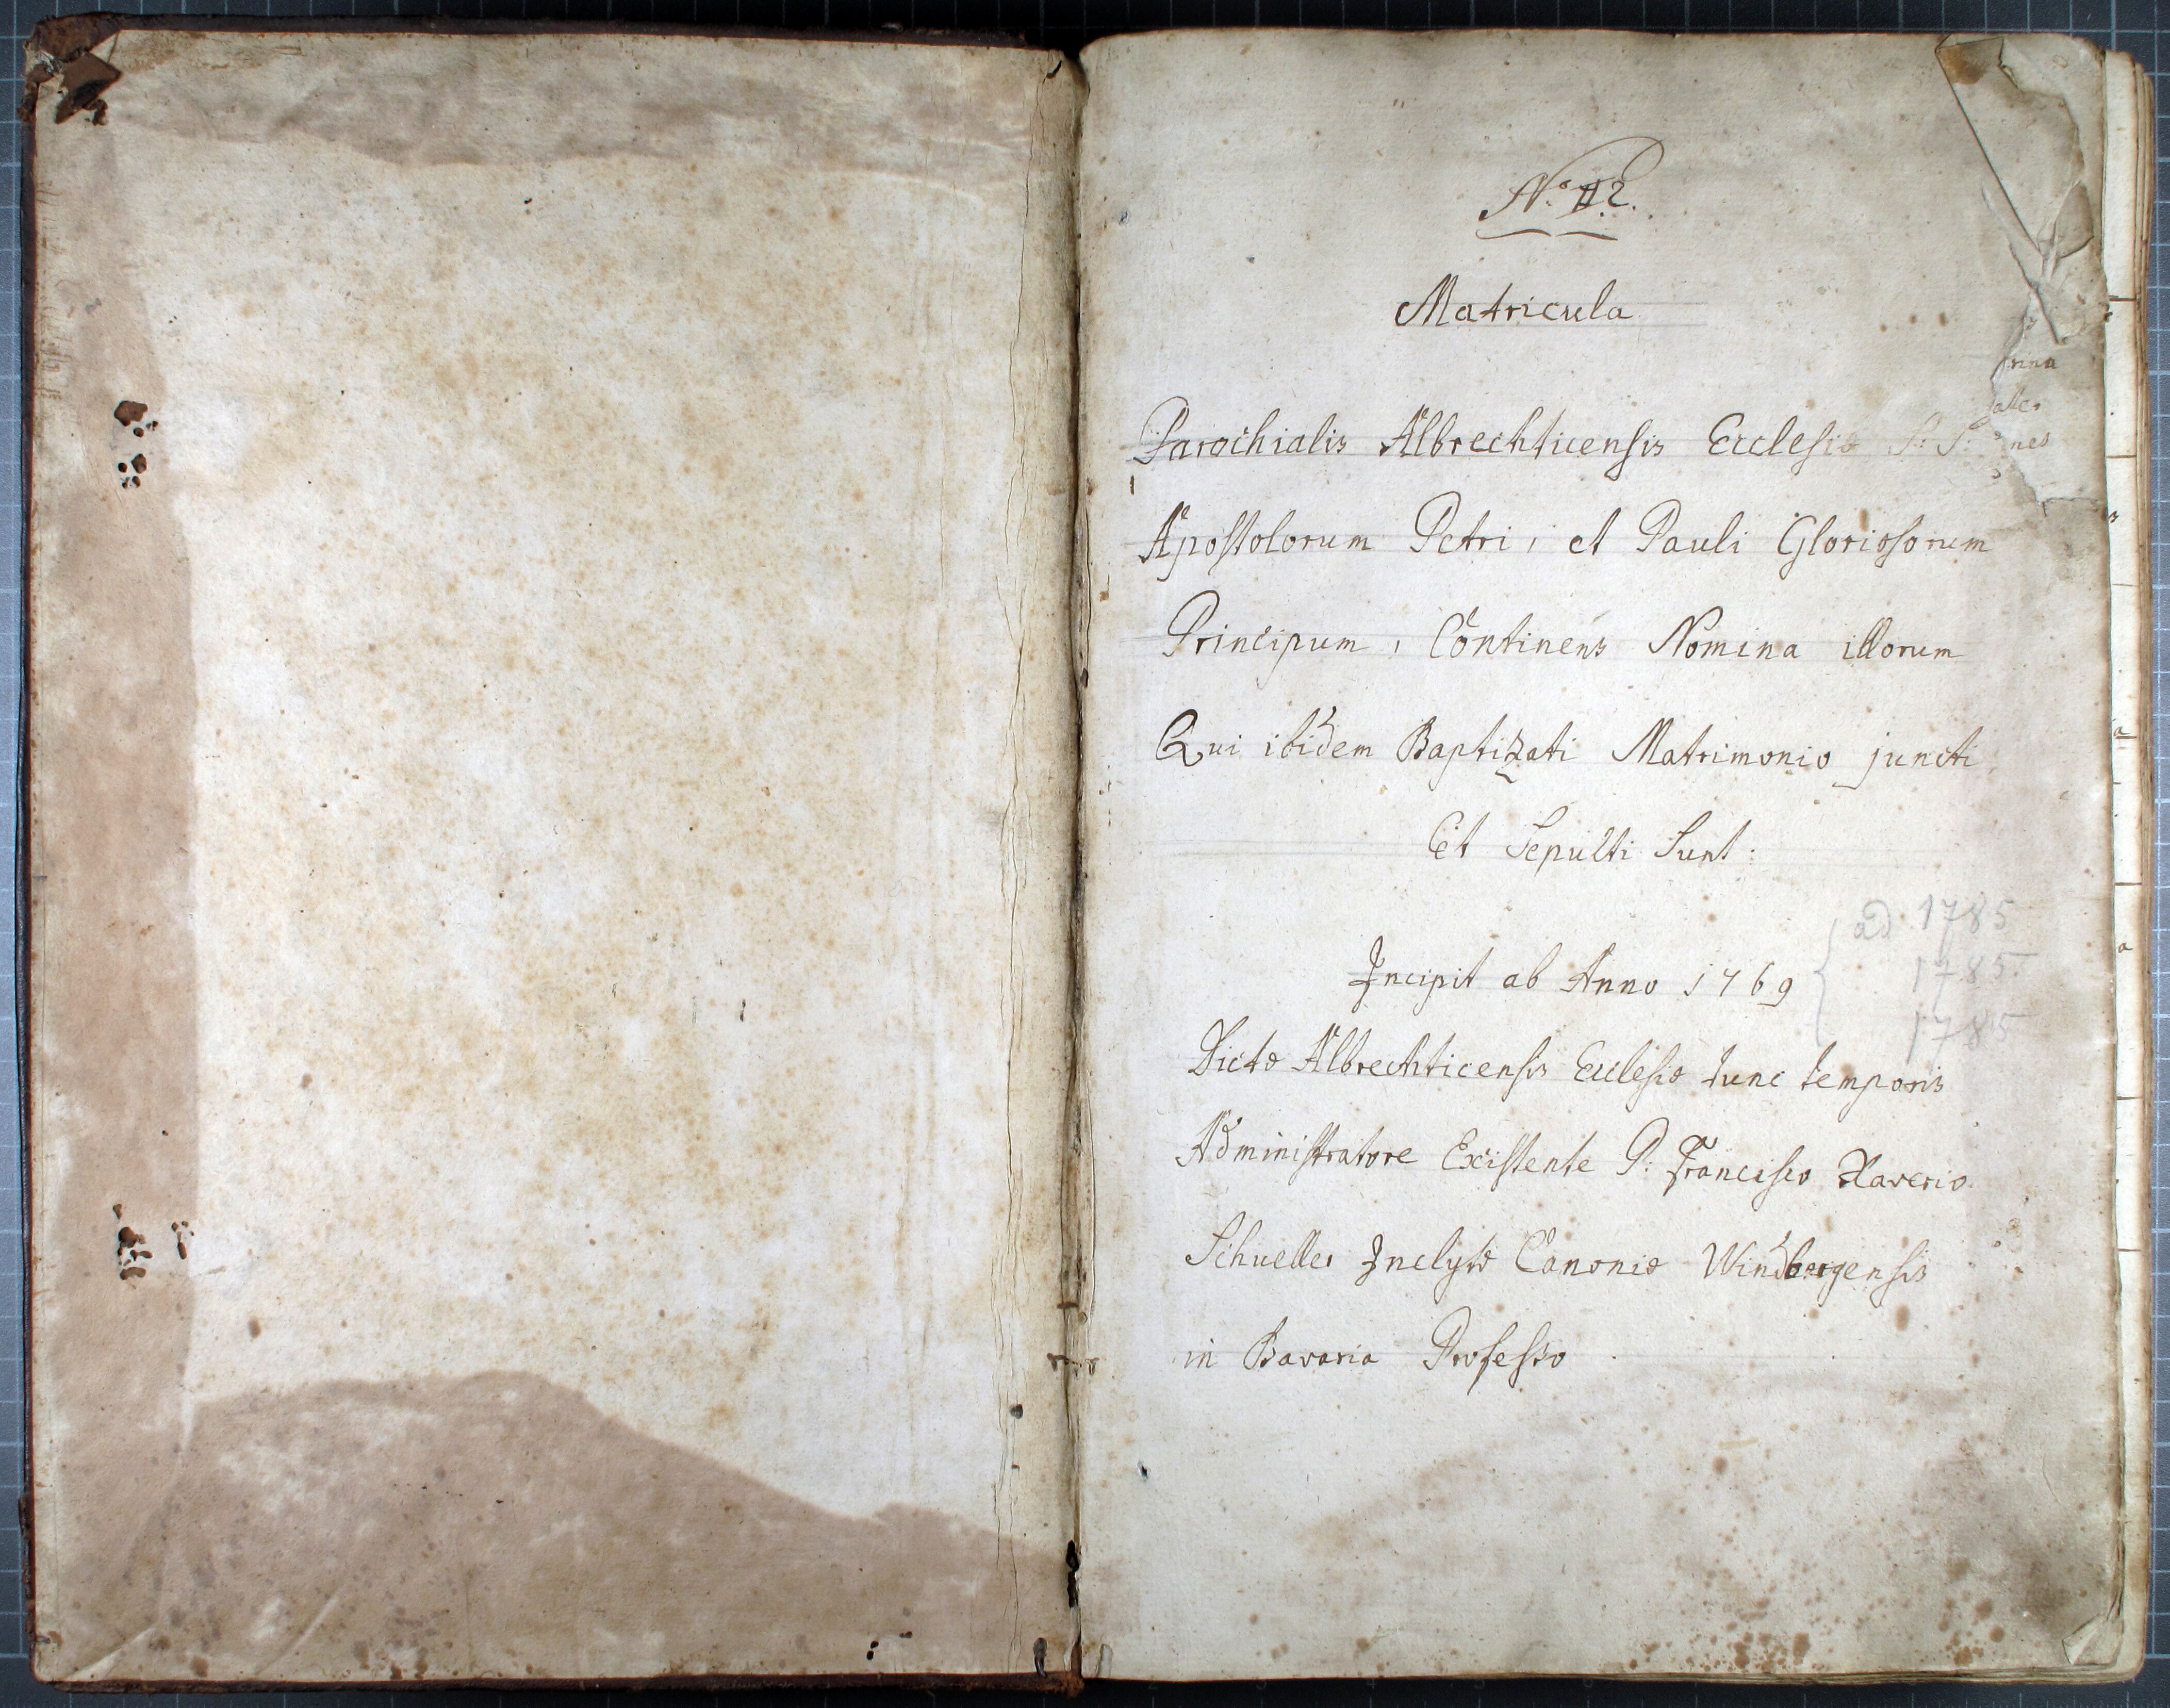 Nº 2.
Matricula
nna
ate
Parochialis Albrechticensis Ecclesiæ S: S: nes
Apostolorum Petri, et Pauli Gloriosorum
Principum, Continens Nomina illorum
Qui ibidem Baptizati Matrimonio juncti
Et Sepulti Sunt.
ad 1785
1785
Incipit ab Anno 1769
1785
Dictæ Albrechticensis Ecclesiæ tunc temporis
Administratore Existente P: Francisco Xaverio
Schueller Inclytæ Canoniæ Windbergensis
in Bavaria Professo